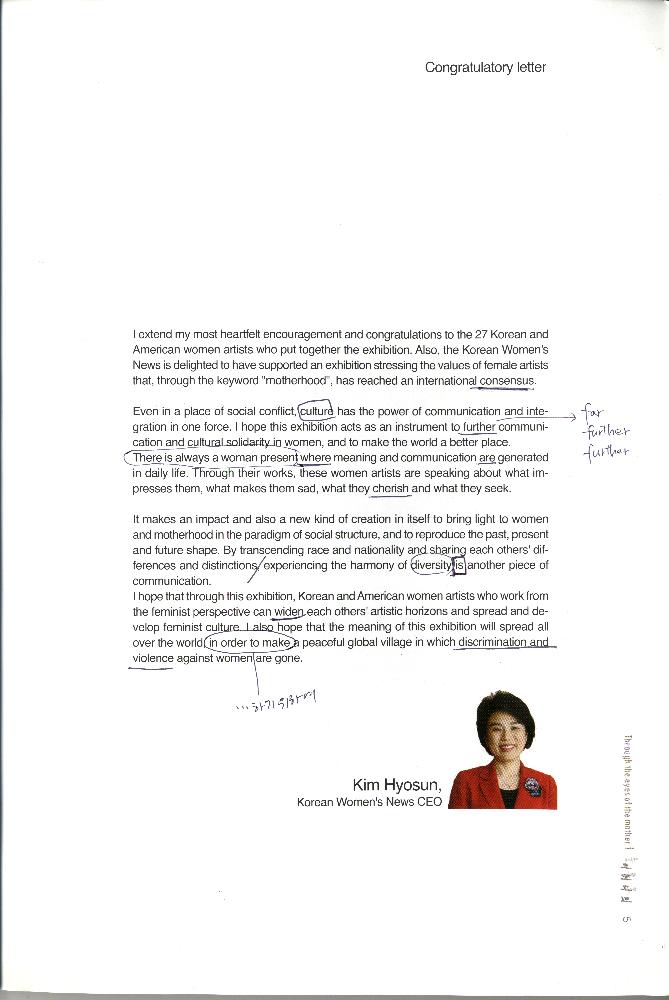 Congratulatory letter
I extend my most heartfelt encouragement and congratulations to the 27 Korean and
American women artists who put together the exhibition. Also, the Korean Women's
News is delighted to have supported an exhibition stressing the values of female artists
that, through the keyword "motherhood", has reached an international consensus.
Even in a place of social conflict, culture has the power of communication and inte-
gration in one force. I hope this exhibition acts as an instrument to further communi-
cation and cultural solidarity in women, and to make the world a better place.
There is always a woman present where meaning and communication are generated
in daily life. Through their works, these women artists are speaking about what im-
presses them, what makes them sad, what they cherish and what they seek.
far
further
further
It makes an impact and also a new kind of creation in itself to bring light to women
and motherhood in the paradigm of social structure, and to reproduce the past, present
and future shape. By transcending race and nationality and sharing each others' dif-
ferences and distinctions experiencing the harmony of diversity is another piece of
communication.
I hope that through this exhibition, Korean and American women artists who work from
the feminist perspective can widen each others' artistic horizons and spread and de-
velop feminist culture. I also hope that the meaning of this exhibition will spread all
over the world in order to make a peaceful global village in which discrimination and
violence against women are gone.
...하기위하여
Kim Hyosun,
Korean Women's News CEO
Through the eyes of the mother
5